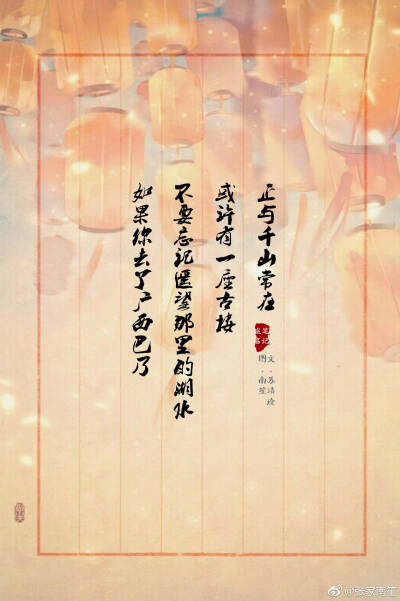 如果你去了广西巴乃
不要忘记遥望那里的湖水
或许有一座古楼
正与千山常在
盗墓
笔记
图·南笙
文·苏
@张家南笙